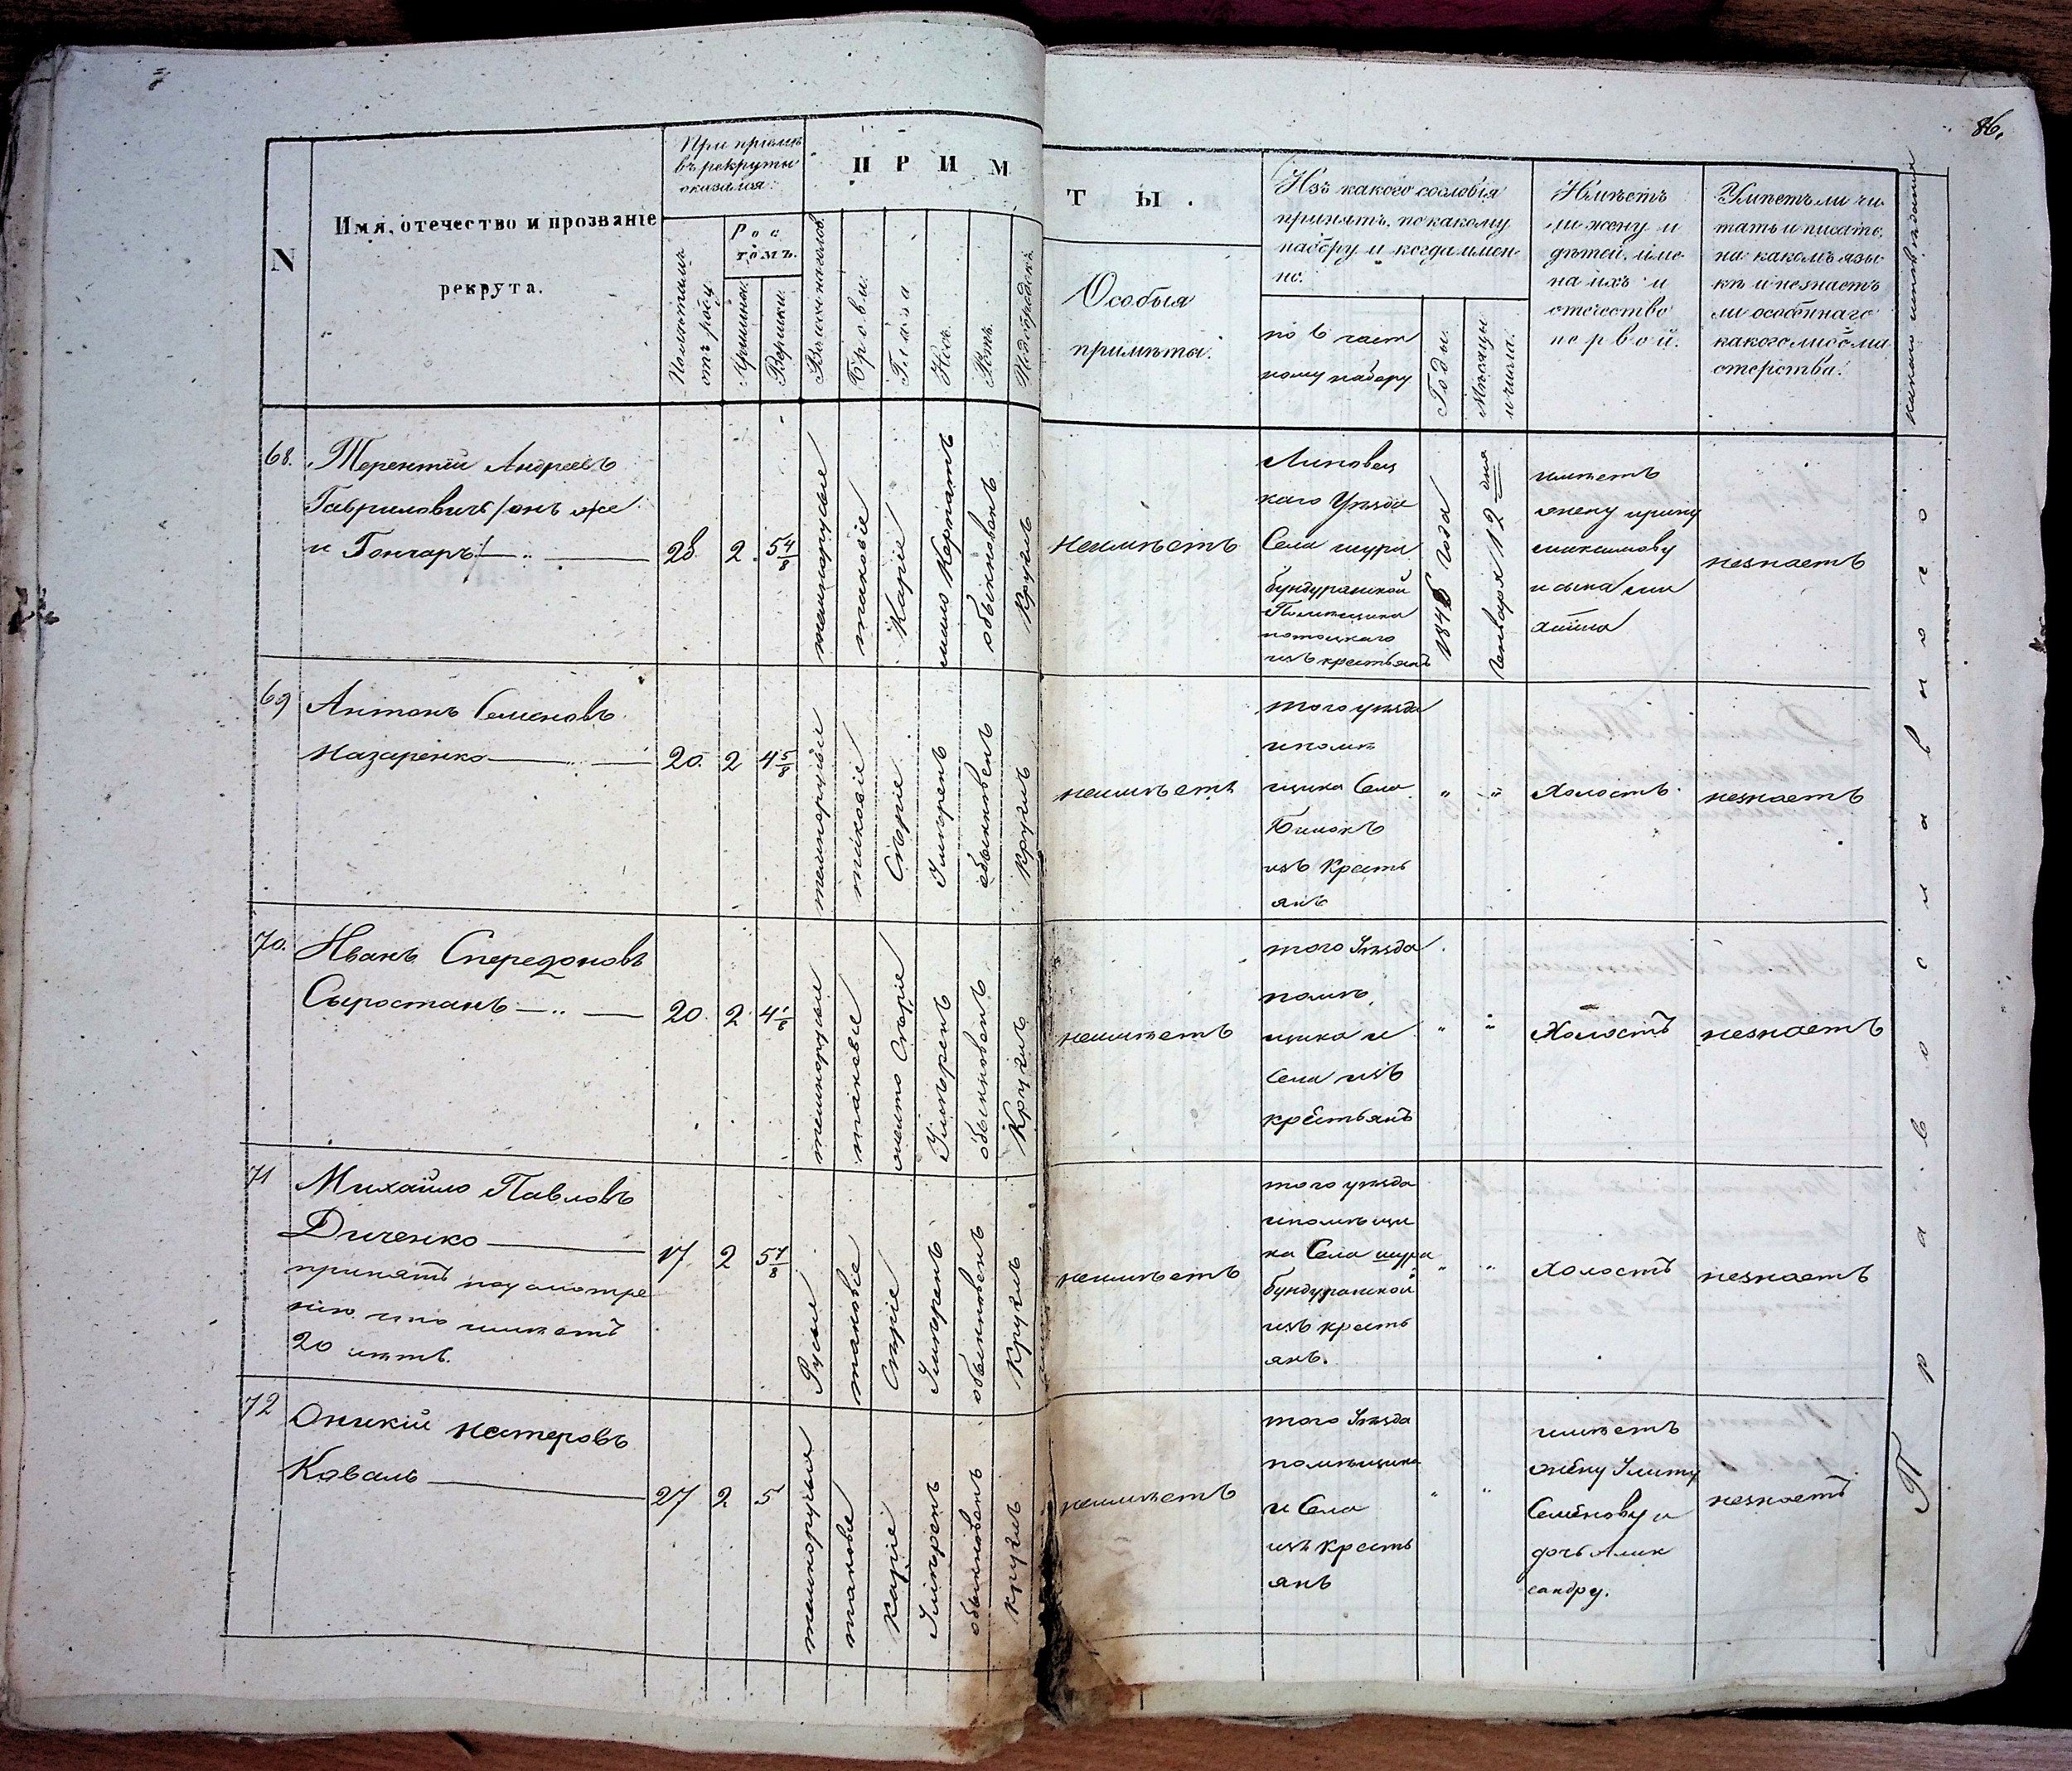 86.
N
Имя, отечество и прозваніе
рекрута.
При пріемѣ
въ рекруты
оказался:
Полѣтамъ
отъ роду
Рос
томъ.
Аршины.
Вершки.
ПРИМ
Волосы на головѣ.
Брови.
Глаза
Носъ.
Ротъ.
Подбородокъ
ТЫ.
Особыя
примѣты.
Изъ какого сословія
принятъ, по какому
набору и когда имен-
но.
по 6 част
ному набору
Годы.
Мѣсяцы
и числа.
Имѣетъ
ли жену и
дѣтей, име-
на ихъ и
отечество
первой.
Умѣетъ ли чи-
тать и писать,
на какомъ язы-
кѣ и незнаетъ
ли особеннаго
какого либо ма
стерства.
какого вѣроисповѣданія
68.
Терентій Андреевъ
Гавриловичъ / онъ же
и Гончаръ /
28
2
5 4/8
темнорусые
таковіе
Каріе
обыкновенъ
Круглъ
неимѣетъ
Липовец
каго Уѣзда
Села шура
бундурашкой
Помѣщика
потоцкаго
изъ крестьянъ
1846 года
Генваря 12 дня
имѣетъ
жену ирину
максимову
и сына
незнаетъ
69
Антонъ Семеновъ
Назаренко
20.
2
4 5/8
темнорусые
таковіе
Сѣріе
Умѣренъ
обыкновенъ
Круглъ
неимѣетъ
того уѣзда
ипомѣ
щика Села
изъ Кресть
янъ
"
"
Холостъ
незнаетъ
70.
Иванъ Спередоновъ
Сыростанъ
20.
2
темнорусые
таковіе
Сѣріе
Умѣренъ
обыкновенъ
Круглъ
неимѣетъ
того Уѣзда
помѣ
щика и
села изъ
крестьянъ
"
"
Холостъ
незнаетъ
71
Михайло Павловъ
Диченко
принятъ поусмотре
нію что имѣетъ
20 лѣтъ.
17.
2
Русые
таковіе
Сѣріе
Умѣренъ
обыкновенъ
Круглъ
неимѣетъ
того уѣзда
ипомѣщи
ка Села шура
бундурашкой
изъ кресть
янъ.
"
"
Холостъ
незнаетъ
72
Оникій нестеровъ
Коваль
27
2
5
темнорусыя
таковіе
каріе
Умѣренъ
обыкновенъ
круглъ
неимѣетъ
того Уѣзда
помѣщика
и Села
изъ кресть
янъ
"
"
имѣетъ
жену Улиту
Семёнову и
дочь Алек
сандру.
незнаетъ
Православного